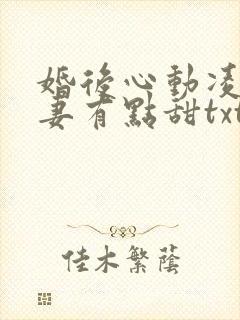 婚後心動凌
妻有點甜txt
佳木繁蔭